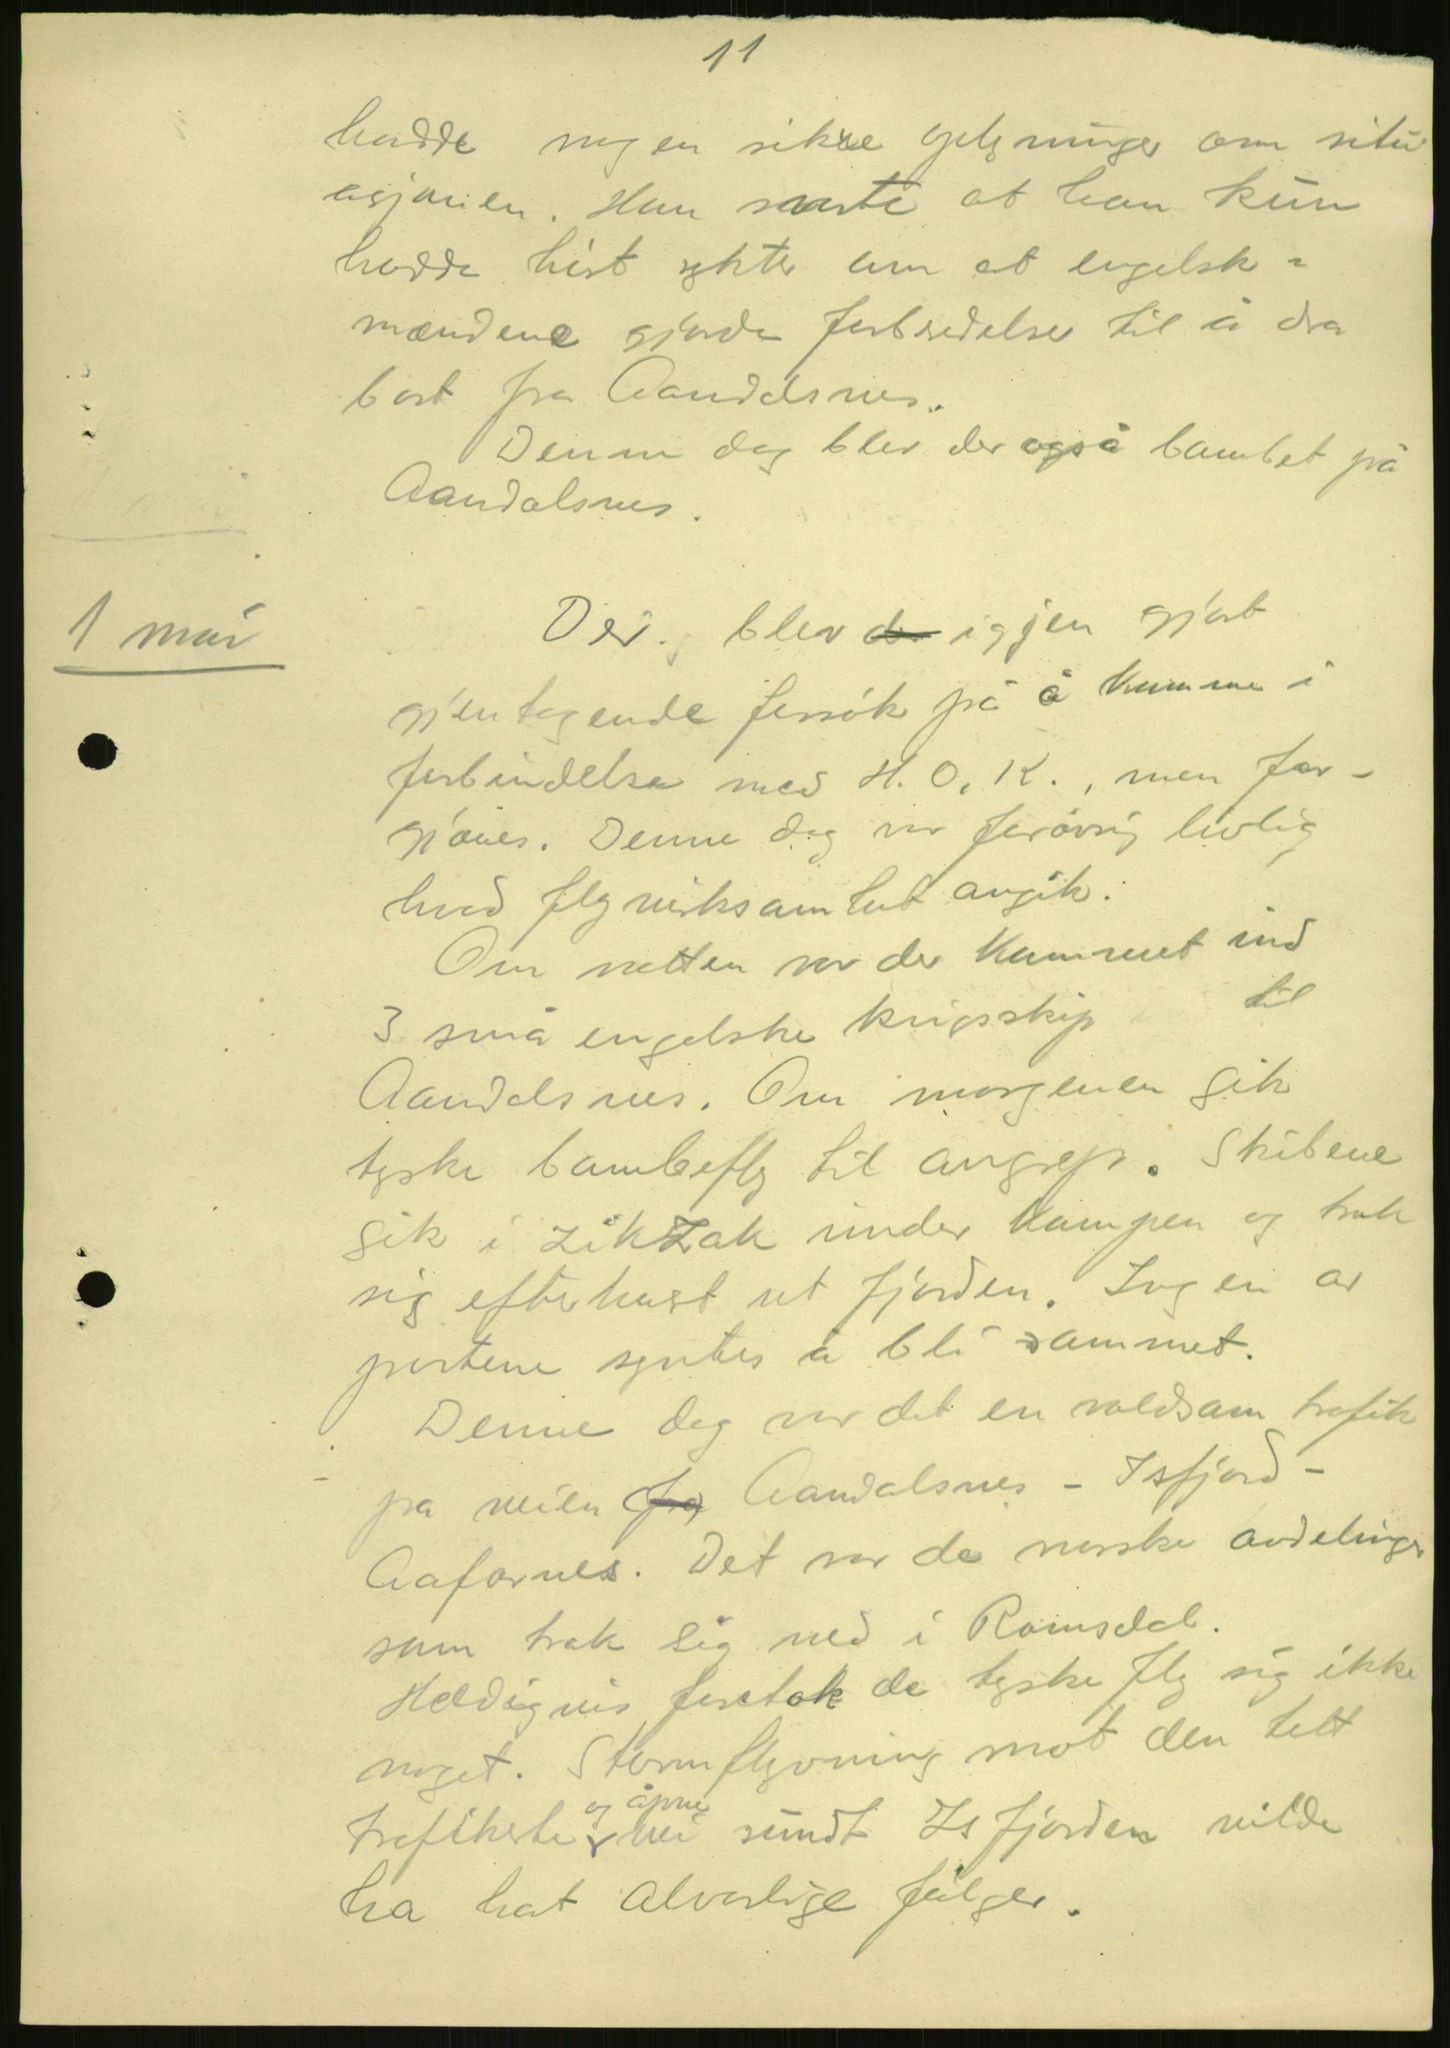 11
hadde nogen sikre oplysninger om situ
asjonen. Han svarte at han kun
hadde hört rykter om at engelsk=
mændene gjorde forberedelser til å dra
bort fra Aandalsnes.
Denne dag blev der også bombet på
Aandalsnes.
1 mai
Der blev igjen gjort
gjentagende forsök på å komme i
forbindelse med H.O.K., men for-
gjæves. Denne dag var forövrig livlig
hvad flyvirksomhet angik.
Om natten var der kommet ind
3 små engelske krigsskip til
Aandalsnes. Om morgenen gik
tyske bombefly til angrep. Skibene
gik i zikzak under kampen og trak
sig efterhvert ut fjorden. Ingen av
partene syntes å bli rammet.
Denne dag var det en voldsom trafik
på veien Aandalsnes - Isfjord -
Aafarnes. Det var de norske avdelinger
som trak sig ned i Romsdal.
Heldigvis foretok de tyske fly sig ikke
noget. Stormflyvning mot den tett
trafikerte og åpne vei rundt Isfjorden vilde
ha hat alvorlige fölger.